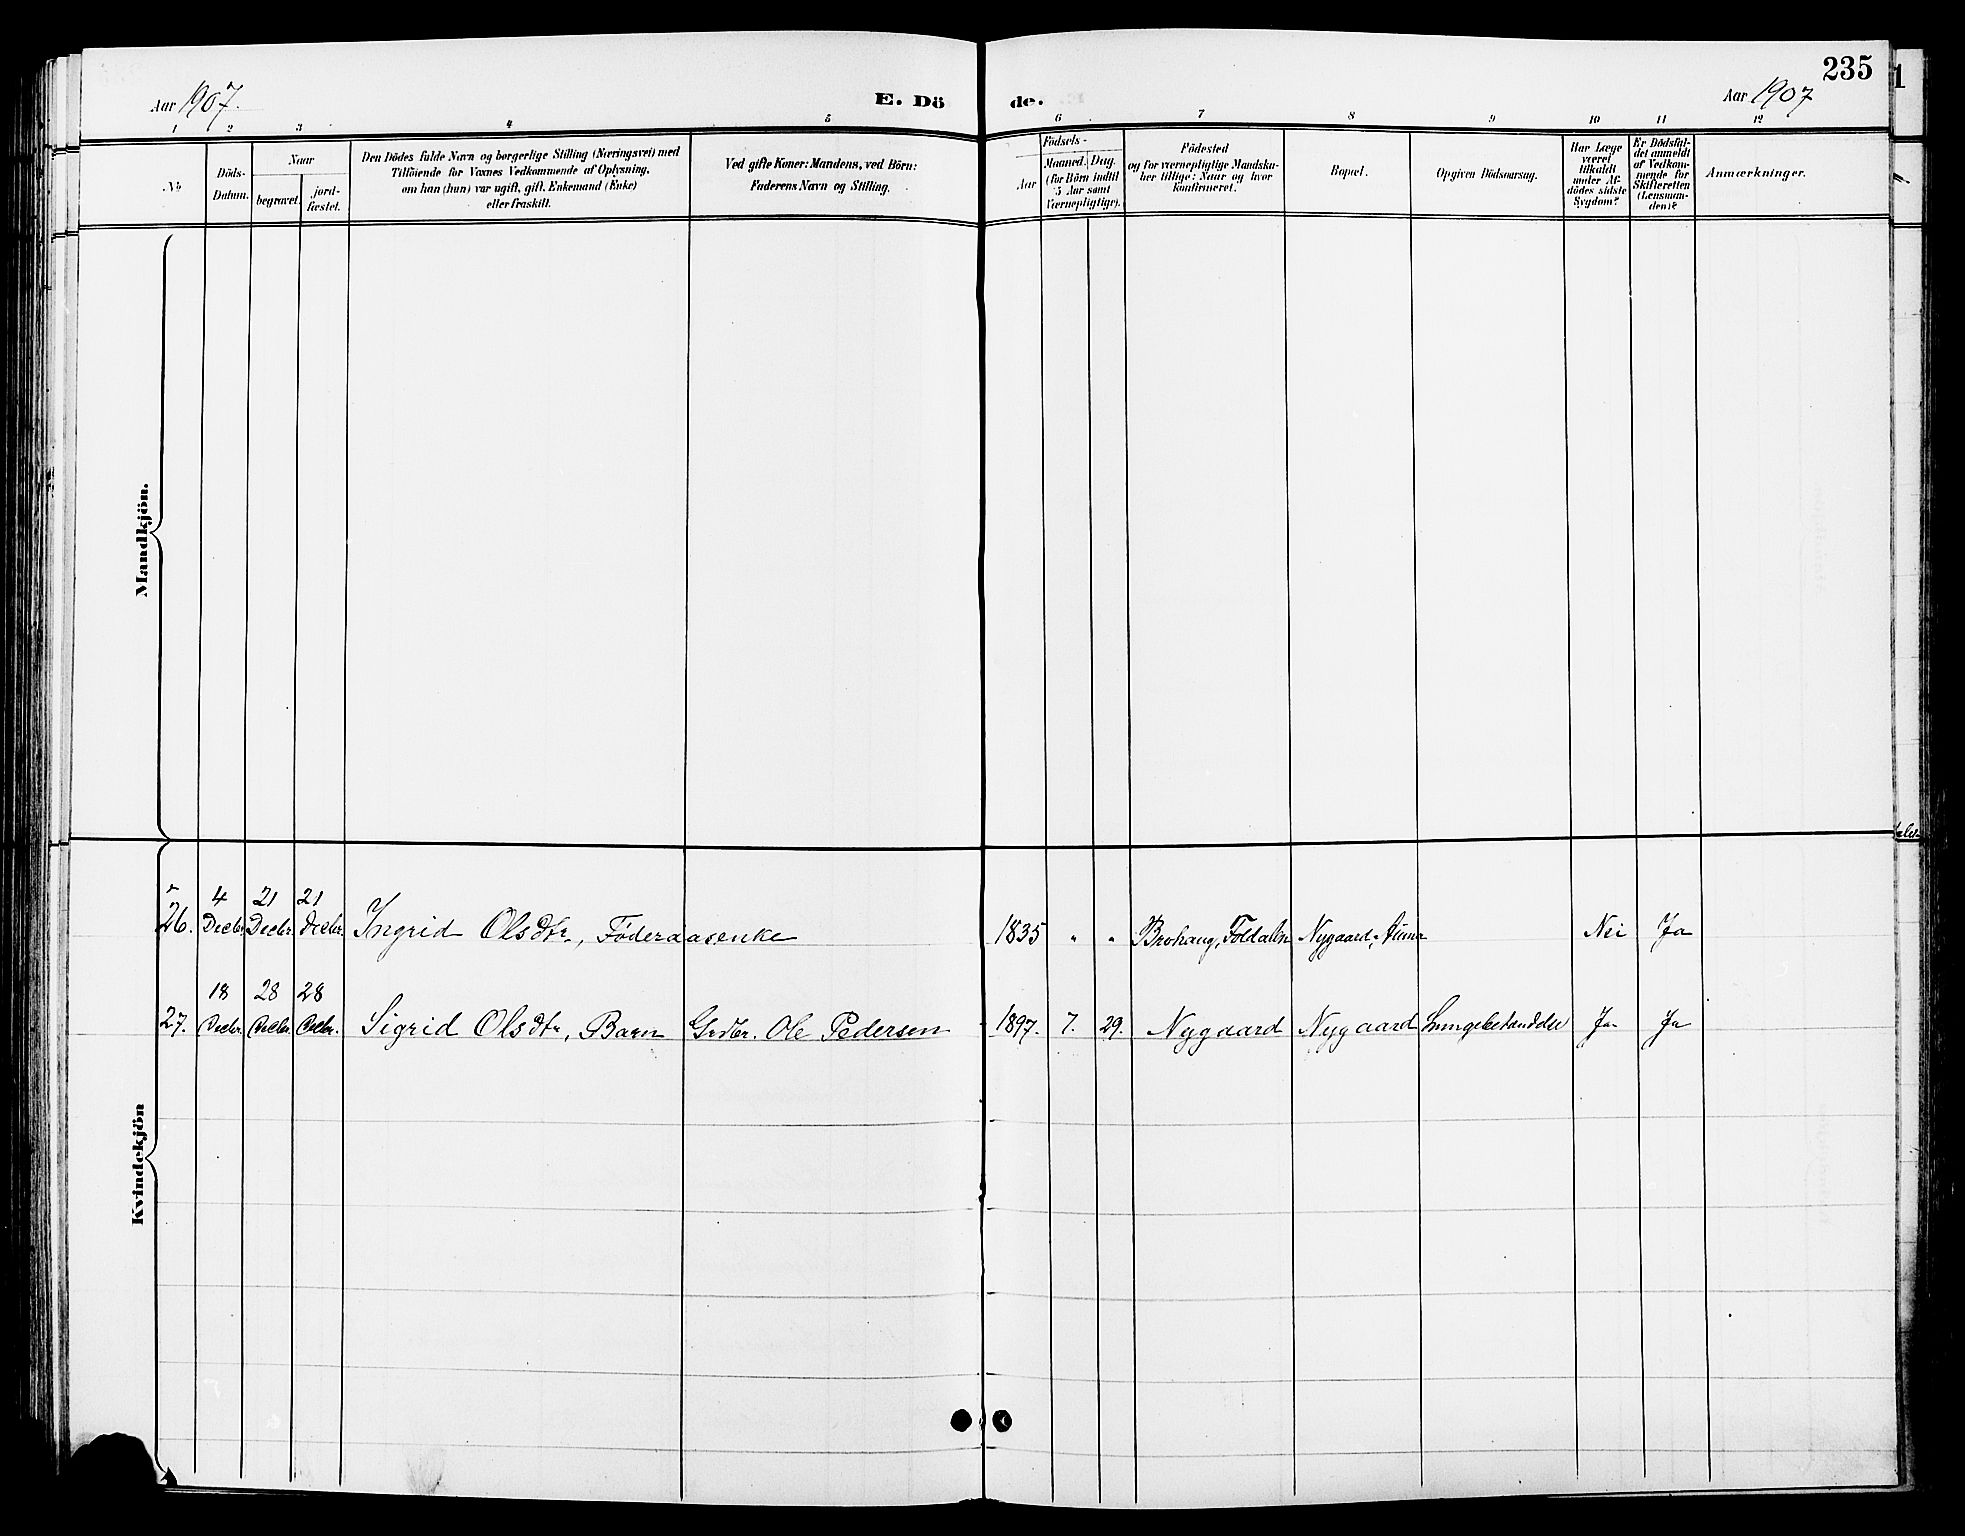 Aar 1907.
E. Dö
de.
Aar 1907
235
1 2 3 4 5 6 7 8 9 10 11 12
No
Döds-
Datum.
Naar
begravet.
jord-
fæstet.
Den Dödes fulde Navn og borgerlige Stilling (Næringsvei) med
Tilföiende for Voxnes Vedkommende af Oplysning,
om han (hun) var ugift, gift, Enkemand (Enke)
eller fraskilt.
Ved gifte Koner: Mandens, ved Börn:
Faderens Navn og Stilling.
Födsels-
Aar
Maaned. Dag.
(for Börn indtil
5 Aar samt
Værnepligtige).
Födested
og for værnepligtige Mandska-
ber tillige: Naar og hvor
konfirmeret.
Bopæl.
Opgiven Dödsaarsag.
Har Læge
været
tilkaldt
under Af-
dödes sidste
Sygdom?
Er Dödsfal-
det anmeldt
af Vedkom-
mende for
Skifteretten
(Lensman-
den)?
Anmærkninger.
Mandkjön.
Kvindekjön
26. 4 Decbr. 21 Decbr. 21 Decbr. Ingrid Olsdtr., Föderaasenke 1835 " " Brohaug, Foldalen Nygaard, Nei Ja
27. 18 Decbr. 28 Decbr. 28 Decbr. Sigrid Olsdtr, Barn Grdbr. Ole Pedersen 1897. 7. 29. Nygaard Nygaard Ja Ja